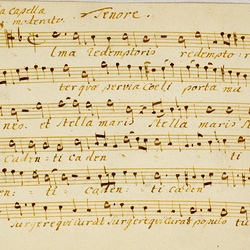 a capella
moderato. Tenore.
lma redemptoris redemptori
ter qua pervia coeli porta ma
nes. et stella maris stella maris
Caden: ti caden ti
en: ti caden: ti caden ti
surgere qui curat surgere qui curat populo ti